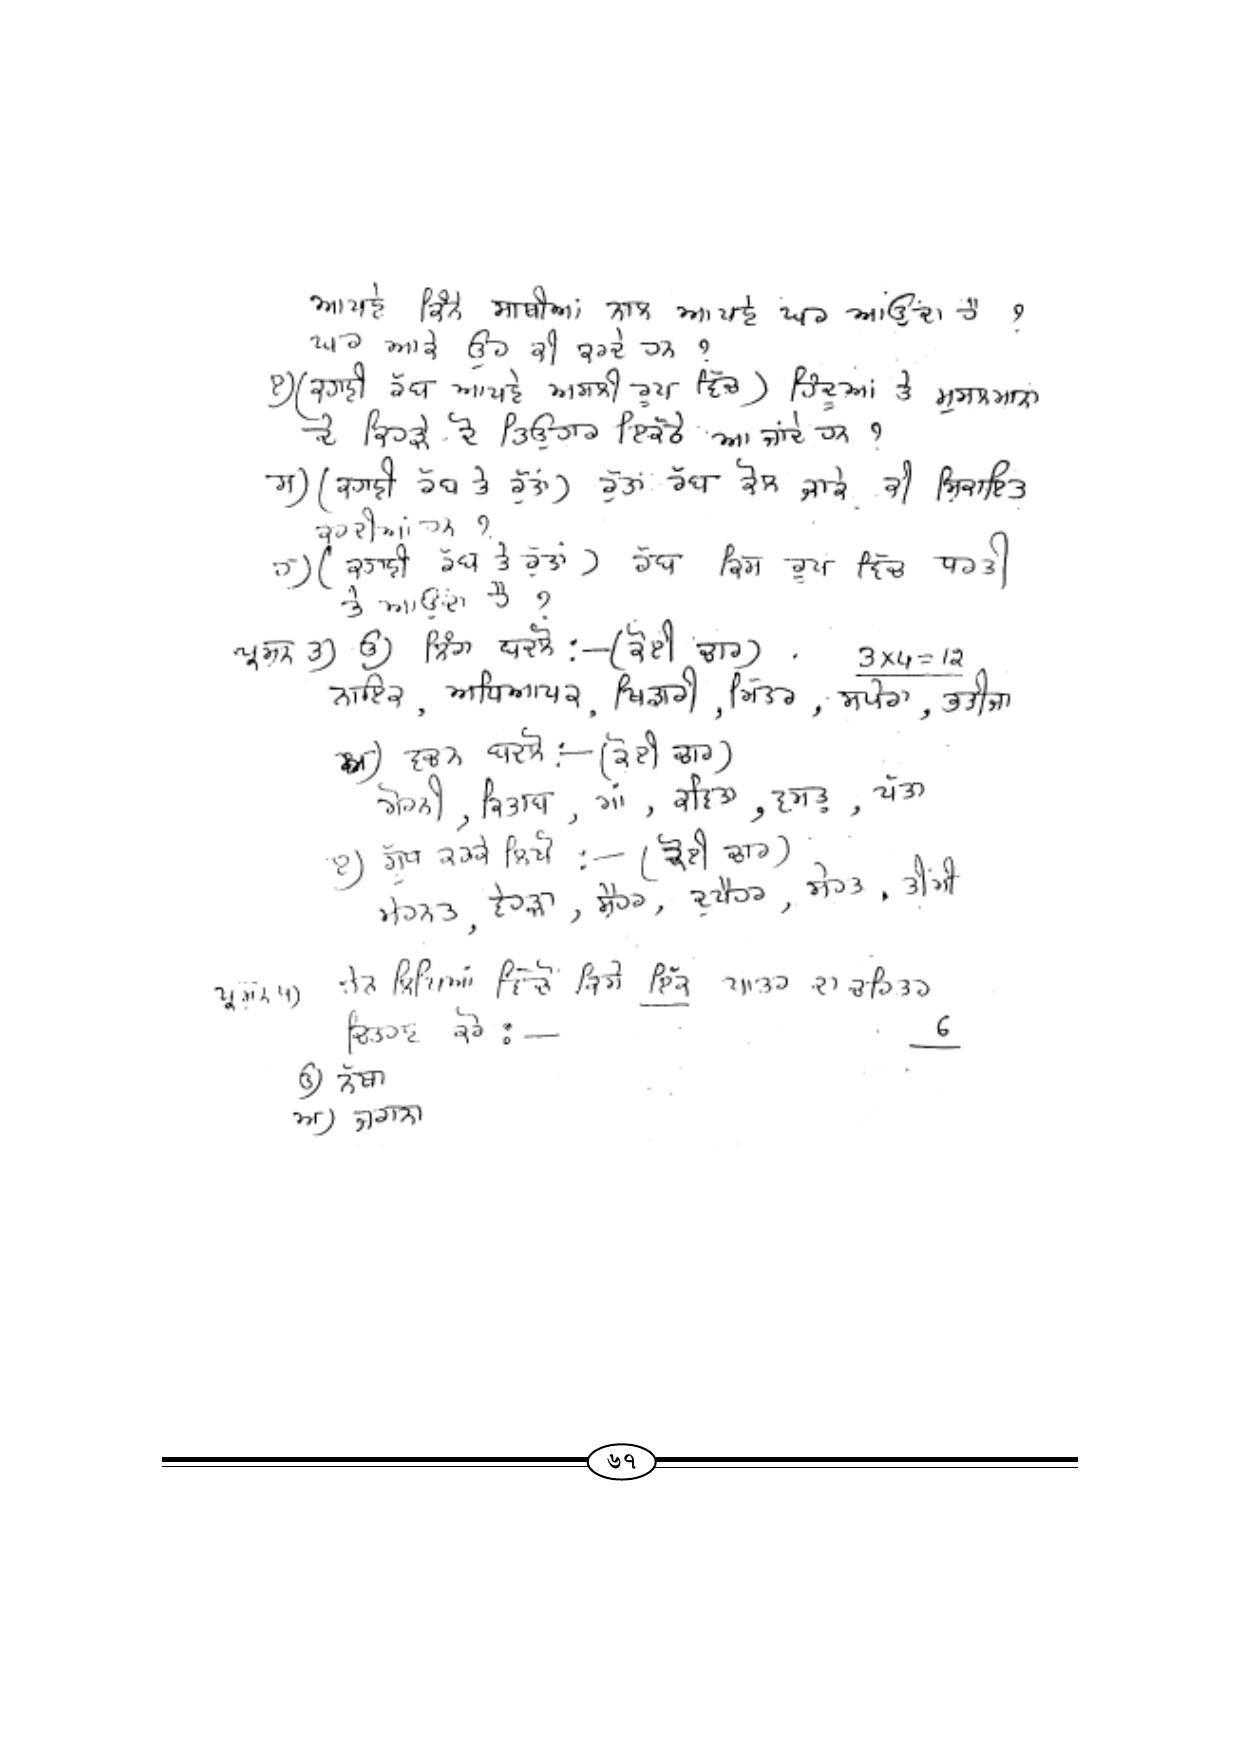 ਆਪਣੇ ਕਿੰਨੇ ਸਾਥੀਆਂ ਨਾਲ ਆਪਣੇ ਘਰ ਆਂਉਂਦਾ ਹੈ ?
ਘਰ ਆਕੇ ਉਹ ਕੀ ਕਰਦੇ ਹਨ ?
ੲ) (ਕਹਾਣੀ ਰੱਬ ਆਪਣੇ ਅਸਲੀ ਰੂਪ ਵਿੱਚ) ਹਿੰਦੂਆਂ ਤੇ ਮੁਸਲਮਾਨਾਂ
ਦੇ ਕਿਹੜੇ ਦੋ ਤਿਉਹਾਰ ਇਕੱਠੇ ਆ ਜਾਂਦੇ ਹਨ ?
ਸ) (ਕਹਾਣੀ ਰੱਬ ਤੇ ਰੁੱਤਾਂ) ਰੁੱਤਾਂ ਰੱਬ ਕੋਲ ਜਾਕੇ ਕੀ ਸ਼ਿਕਾਇਤ
ਕਰਦੀਆਂ ਹਨ ?
ਹ) (ਕਹਾਣੀ ਰੱਬ ਤੇ ਰੁੱਤਾਂ) ਰੱਬ ਕਿਸ ਰੂਪ ਵਿੱਚ ਧਰਤੀ
ਤੇ ਆਉਂਦਾ ਹੈ ?
ਪ੍ਰਸ਼ਨ ੩) ੳ) ਲਿੰਗ ਬਦਲੋ :—(ਕੋਈ ਚਾਰ) 3x4=12
ਨਾਇਕ, ਅਧਿਆਪਕ, ਖਿਡਾਰੀ, ਮਿੱਤਰ, ਸਪੇਰਾ, ਭਤੀਜਾ
ਅ) ਵਚਨ ਬਦਲੋ :—(ਕੋਈ ਚਾਰ)
ਰੋਹਨੀ, ਕਿਤਾਬ, ਗਾਂ, ਕਵਿਤਾ, ਵਸਤੂ, ਪੱਤਾ
ੲ) ਸ਼ੁੱਧ ਕਰਕੇ ਲਿਖੋ :—(ਕੋਈ ਚਾਰ)
ਮੇਹਨਤ, ਵੇਹੜਾ, ਸ਼ੈਹਰ, ਦੁਪੈਹਰ, ਸੇਹਤ, ਤੀਂਮੀ
ਪ੍ਰਸ਼ਨ ੫) ਹੇਠ ਲਿਖਿਆਂ ਵਿੱਚੋਂ ਕਿਸੇ ਇੱਕ ਪਾਤਰ ਦਾ ਚਰਿਤਰ
ਚਿਤਰਣ ਕਰੋ :— 6
ੳ) ਨੱਥਾ
ਅ) ਜਗਨਾ
੬੧